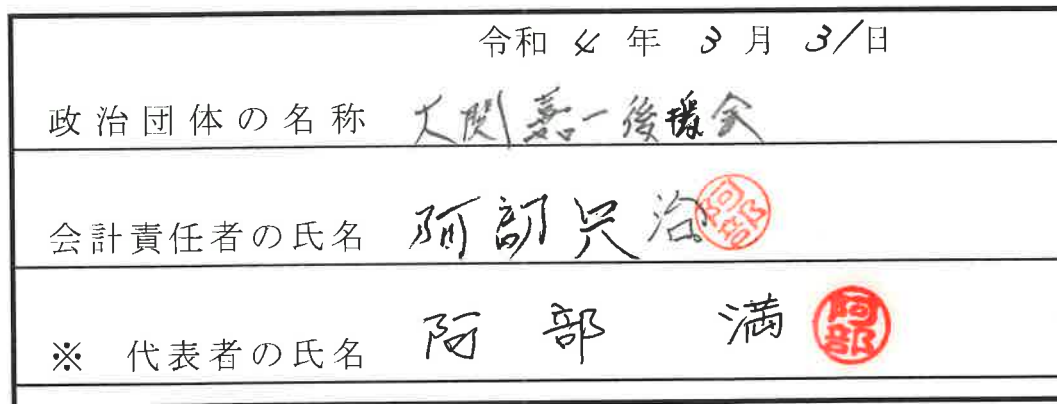 令和 4 年 3 月 31日
政治団体の名称 大関嘉一後援会
会計責任者の氏名 阿部只治 阿部
※ 代表者の氏名 阿部 満 阿部